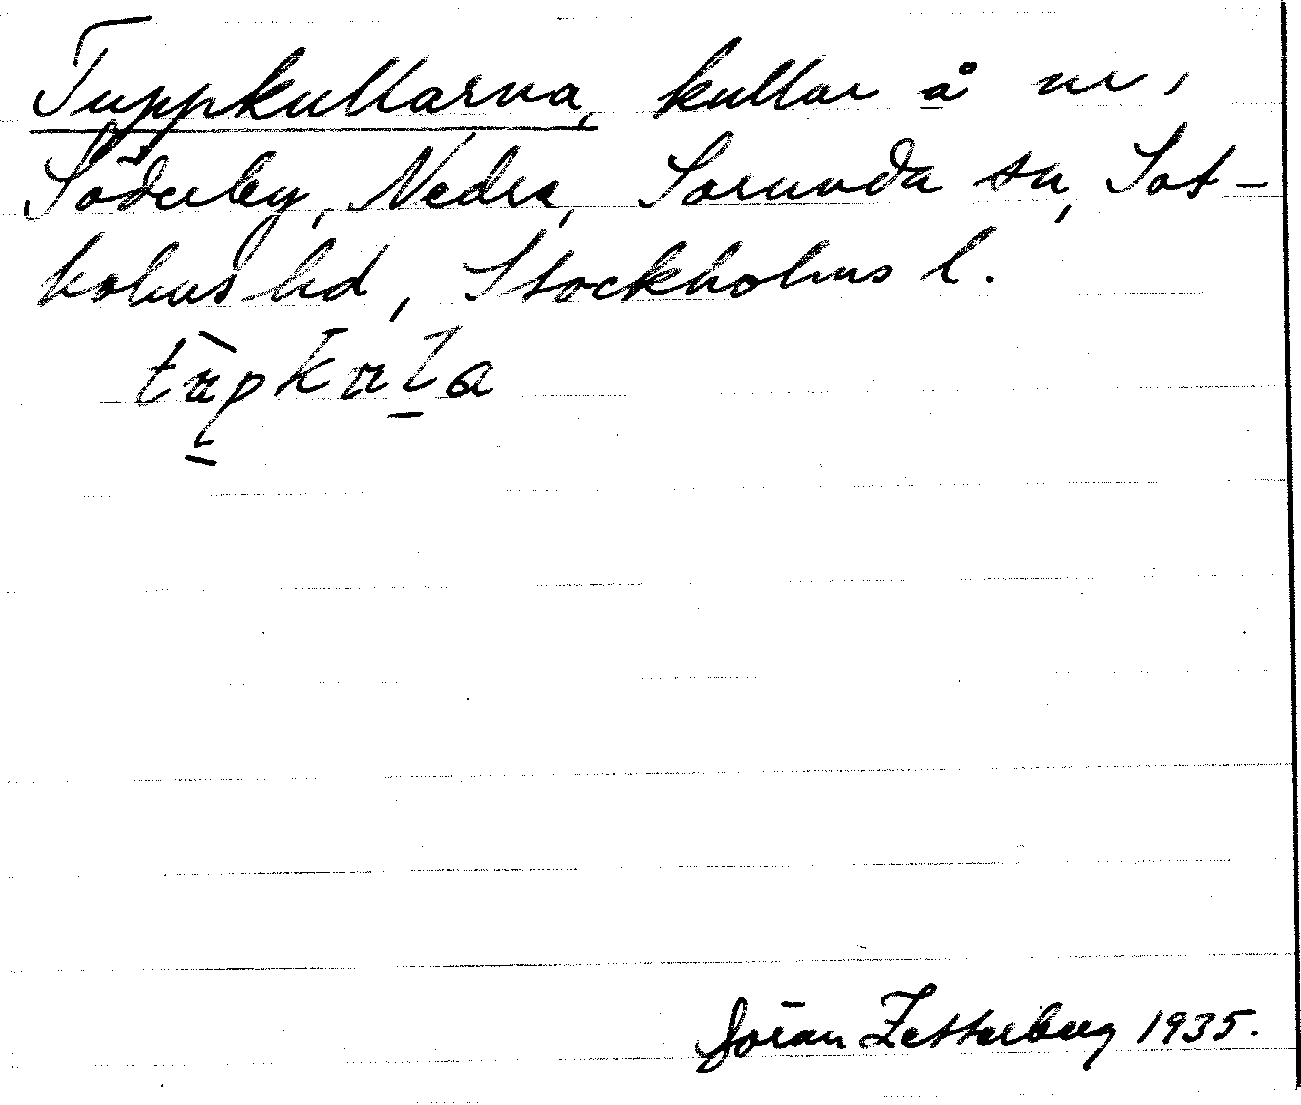 Tuppkullarna, kullar å nr 1
Söderby, Nedra, Sorunda sn, Sot-
holms hd, Stockholms l.
Göran Zetterberg 1935.